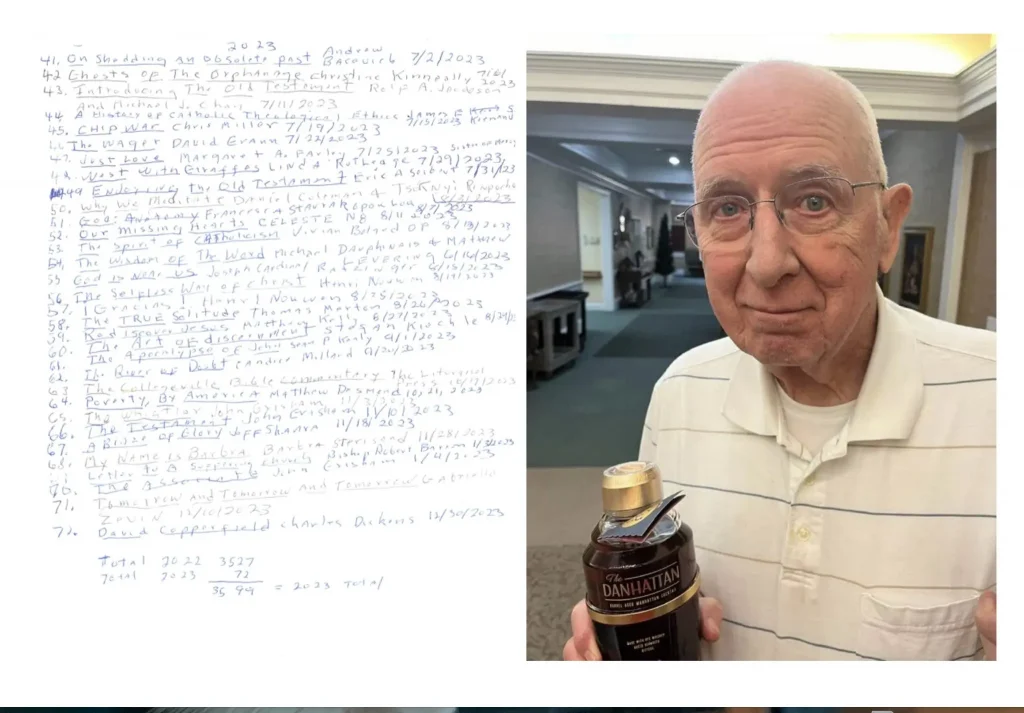 2023
41. On Shedding an Obsolete past Andrew
Bacevich 7/2/2023
42 Ghosts of The Orphanage Christine Kenneally 7/6/
2023
43. Introducing The Old Testament Rolf A. Jacobson
And Michael J. Chan 7/11/2023
44 A History of Catholic Theological Ethics James F Keenan S
7/15/2023
45. CHIP WAR Chris Miller 7/19/2023
The WAGER DAVID Grann 7/22/2023
47. Just Love Margaret A. Farley 7/25/2023 Sister of Mercy
West With Giraffes Lynda Rutledge 7/29/2023
49 the Old Testament Eric A Seibert 7/31/23
50. Why We Meditate Daniel Goleman & Tsoknyi Rinpoche
51. God: Anatomy Francesca Stavrakopoulou 8/7/2023
52. Our missing Hearts CELESTE Ng 8/11 2023
53. The Spirit of Catholicism Vivian Boland OP
54. The Wisdom of The Word Michael Dauphinais & Matthew
LEVERING
55 God is Near Us Joseph Cardinal Ratzinger
56. The Selfless Way of Christ Henri Nouwen
57. Henri Nouwen 8/25/2023
58. The TRUE Solitude Thomas Merton 8/26/2023
59. Rediscover Jesus Matthew Kelly 8/27/2023
60. The Art of discernment Stefan Kiechle
61. The Apocalypse of John Sean P Kealy 9/1/2023
62. The River of Doubt Candice Millard
63 The Collegeville Bible Commentary The Liturgical
Press
64. Poverty, By America Matthew Desmond 10, 21, 2023
65. The Whistler John Grisham 11/3/2023
66. The Testament John Grisham 11/10/2023
67. A Blaze of Glory Jeff Shaara 11/18/2023
68. My Name is Barbra Barbra Streisand 11/28/2023
Letter to A Suffering Church Bishop Robert Barron
70. The Associate John Grisham
71. Tomorrow And Tomorrow and Tomorrow Gabrielle
ZEVIN 12/10/2023
72. David Copperfield Charles Dickens 12/30/2023
Total 2022 3527
Total 2023 72
3599 = 2023 Total
The
DANHATTAN
BARREL AGED MANHATTAN COCKTAIL